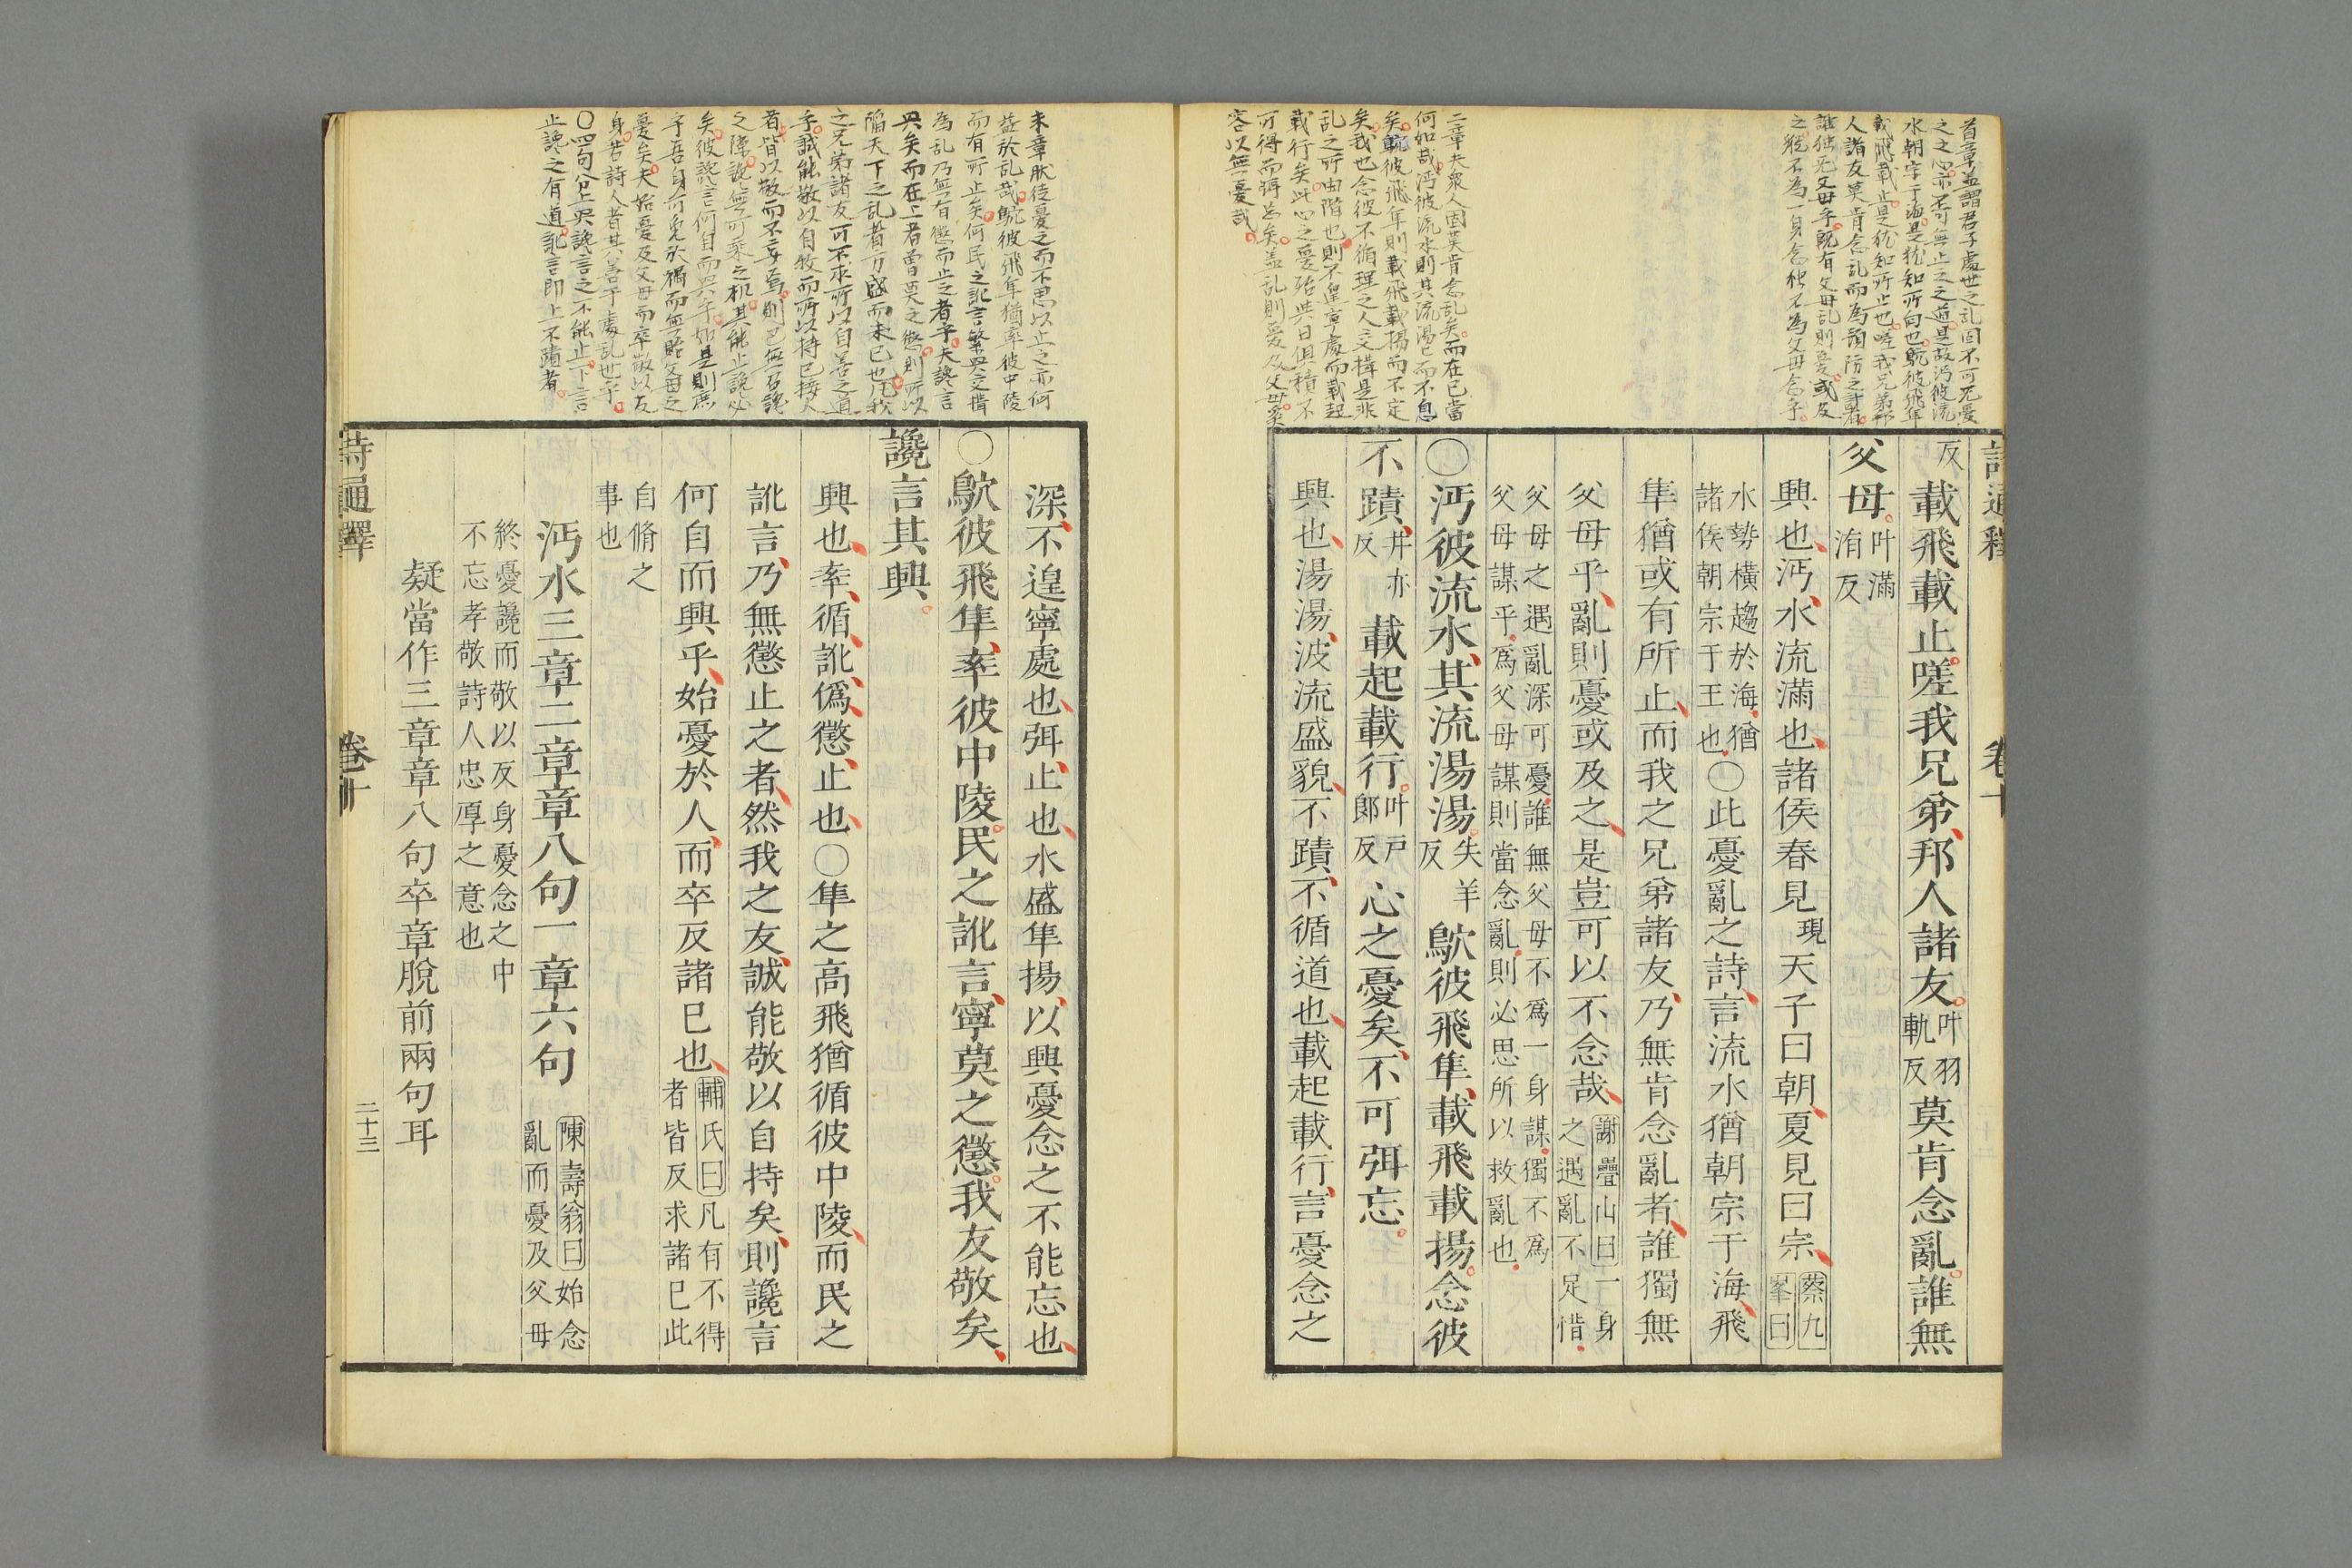 詩通釋
卷十
反載飛載止嗟我兄弟邦人諸友叶羽軌反莫肯念亂誰無
父母叶滿洧反
興也沔水流滿也諸侯春見現天子曰朝夏見曰宗蔡九峯曰
水勢橫趨於海猶諸侯朝宗于王也○此憂亂之詩言流水猶朝宗于海飛
隼猶或有所止而我之兄弟諸友乃無肯念亂者誰獨無
父母乎亂則憂或及之是豈可以不念哉謝疊山曰一身之遇亂不足惜
父母之遇亂深可憂誰無父母不爲一身謀獨不爲父母謀乎爲父母謀則當念亂則必思所以救亂也
○沔彼流水其流湯湯失羊反鴥彼飛隼載飛載揚念彼
不蹟井亦反載起載行叶戶郎反心之憂矣不可弭忘
興也湯湯波流盛貌不蹟不循道也載起載行言憂念之
深不遑寧處也弭止也水盛隼揚以興憂念之不能忘也
○鴥彼飛隼率彼中陵民之訛言寧莫之懲我友敬矣
讒言其興
興也率循訛僞懲止也○隼之高飛猶循彼中陵而民之
訛言乃無懲止之者然我之友誠能敬以自持矣則讒言
何自而興乎始憂於人而卒反諸已也輔氏曰凡有不得者皆反求諸已此
自脩之事也
沔水三章二章章八句一章六句 陳壽翁曰始念亂而憂及父母
終憂讒而敬以反身憂念之中不忘孝敬詩人忠厚之意也
疑當作三章章八句卒章脫前兩句耳
詩通釋
卷十
二十三
首章盖謂君子處世之乱固不可無憂
之之心亦不可無止之之道是故沔彼流
水朝宗于海是犹知所向也鴥彼飛隼
載飛載止是犹知所止也嗟我兄弟邦
人諸友莫肯念乱而為預防之計者
誰独无父母乎既有父母乱則憂或及
之縱不為一身念独不為父母念乎
二章夫衆人固莫肯念乱矣而在已當
何如哉沔彼流水則其流湯湯而不息
矣鴥彼飛隼則載飛載揚而不定
矣我也念彼不循理之人交構是非
乱之所由階也則不遑寧處而載起
載行矣此心之憂殆與日俱積不
可得而弭忘矣盖乱則憂及父母奚
容以無憂哉
末章肰徒憂之而不思以止之亦何
益於乱哉鴥彼飛隼猶率彼中陵
而有所止矣何民之訛言繁興交搆
為乱乃無有懲而止之者乎夫讒言
興矣而在上者曽莫之懲則所以
陥天下之乱者方盛而未已也凡我
之兄弟諸友可不求所以自善之道
乎誠能敬以自牧而所以持已接人
者皆以敬而不妄焉則已無召讒
之隙讒無可乘之机其能止讒必
矣彼讒言何自而興乎如是則庶
乎吾身可免於禍而無貽父母之
憂矣夫始憂及父母而卒敬以反
身若詩人者其善于處乱世乎
○四句分上興讒言之不能止下言
止讒之有道訛言即上不蹟者